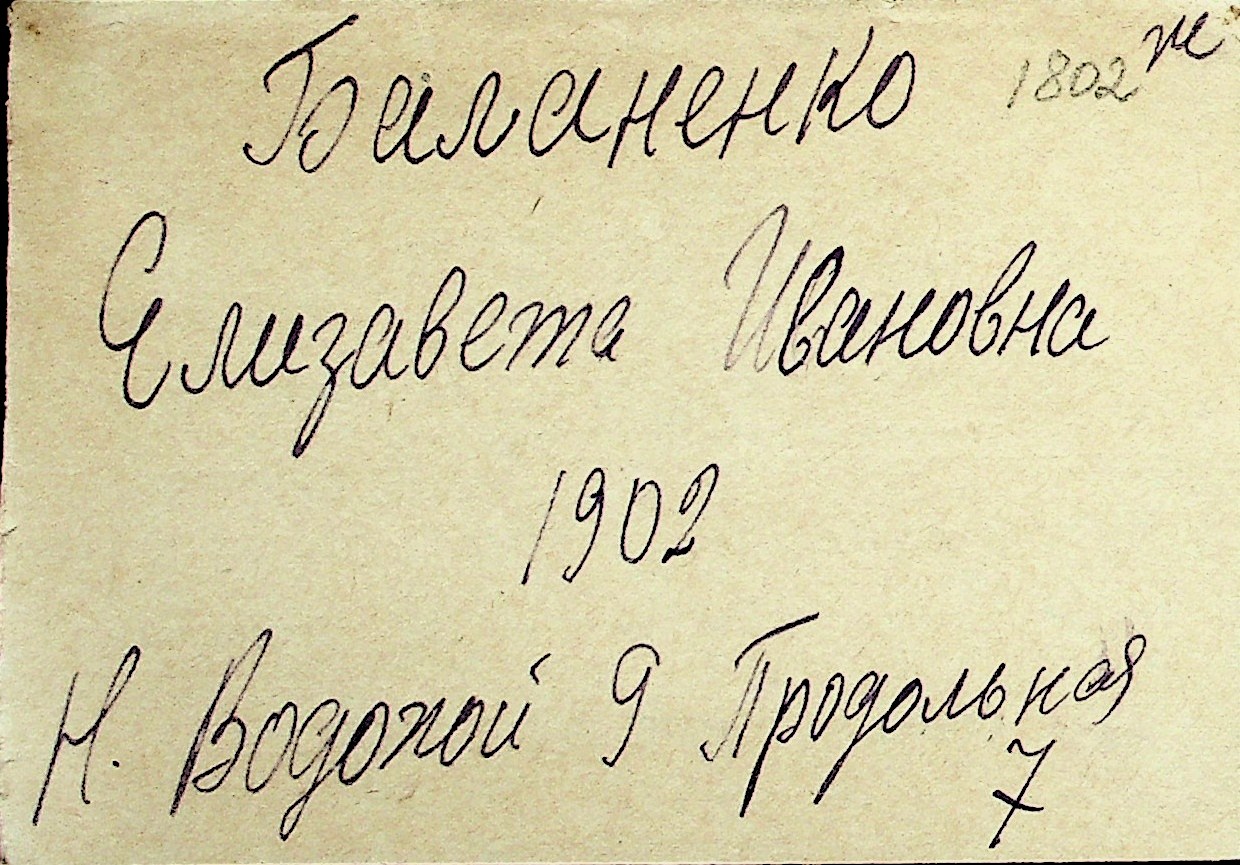 Баланенко 1802 ж
Елизавета Ивановна
1902
Н. Водопой 9 Продольная
7